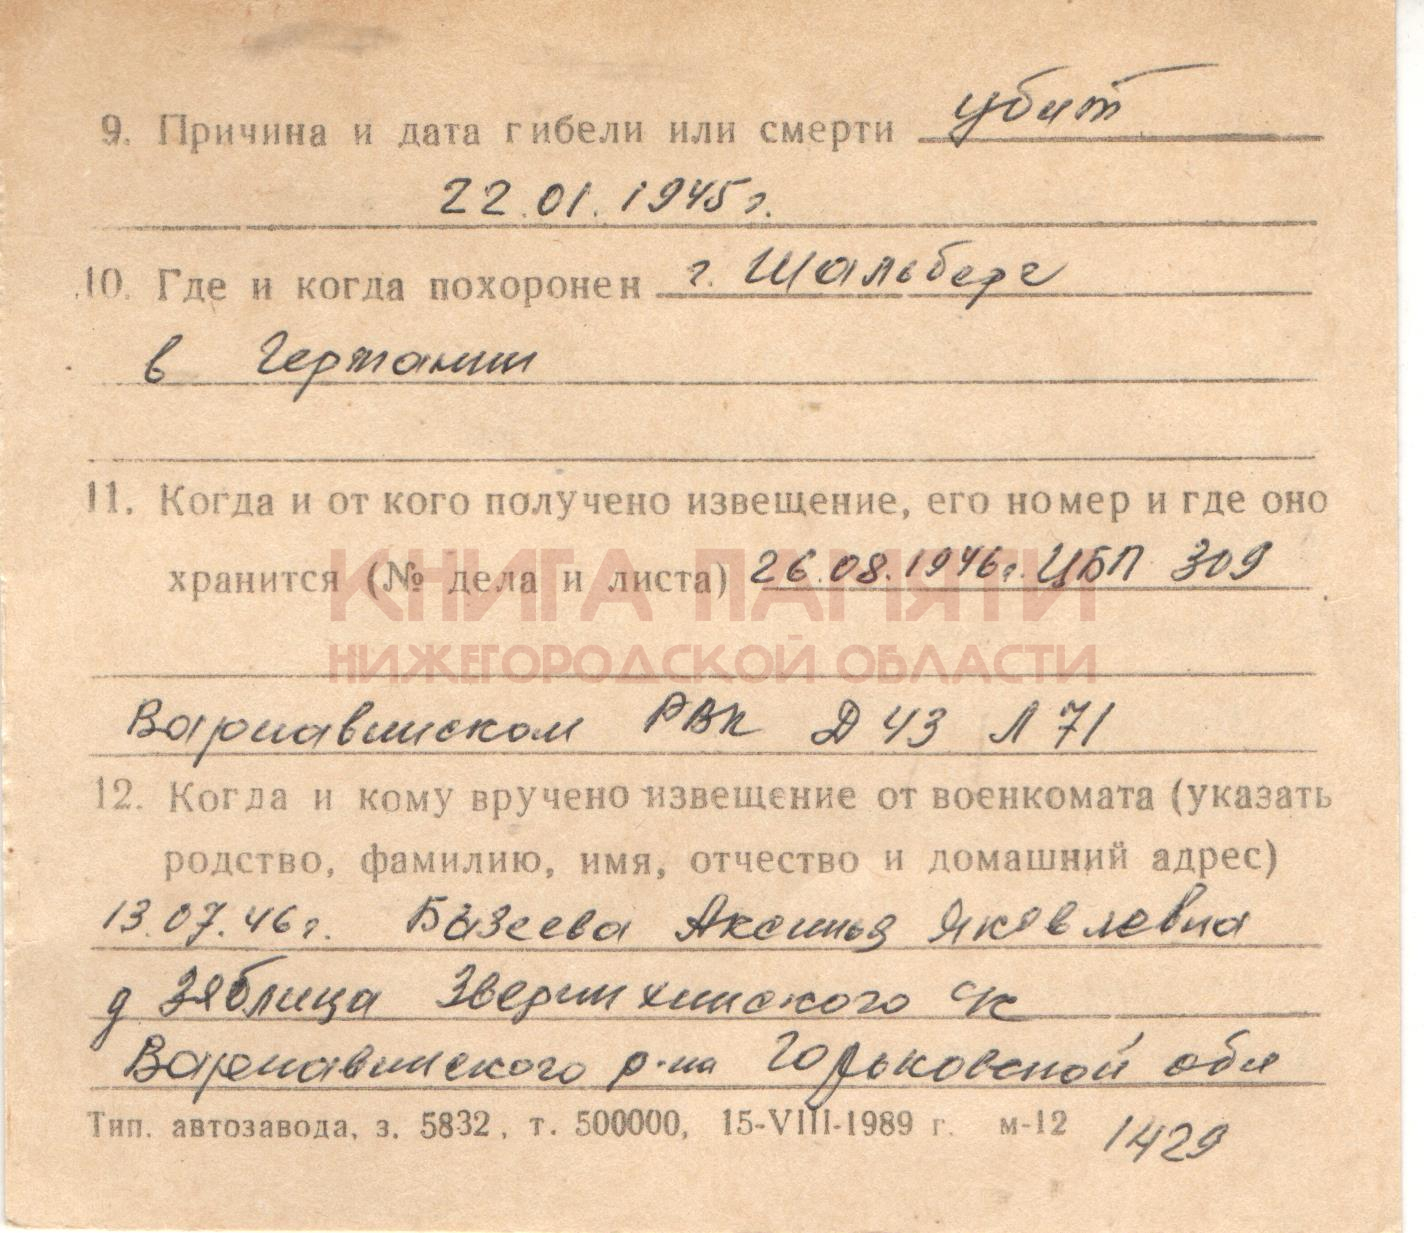 9. Причина и дата гибели или смерти убит
22.01.1945г.
10. Где и когда похоронен г. Шальберг
в Германии
11. Когда и от кого получено извещение, его номер и где оно
хранится (№ дела и листа) 26.08.1946г. ЦБП 309
КНИГА ПАМЯТИ
НИЖЕГОРОДСКОЙ ОБЛАСТИ
Варнавинском РВК Д 43 Л 71
12. Когда и кому вручено извещение от военкомата (указать
родство, фамилию, имя, отчество и домашний адрес)
13.07.46г. Базеева Аксинья Яковлевна
д Зяблица Зверинхинского с/с
Варнавинского р-на Горьковской обл
Тип. автозавода, з. 5832, т. 500000, 15-VIII-1989 г. м-12
1429